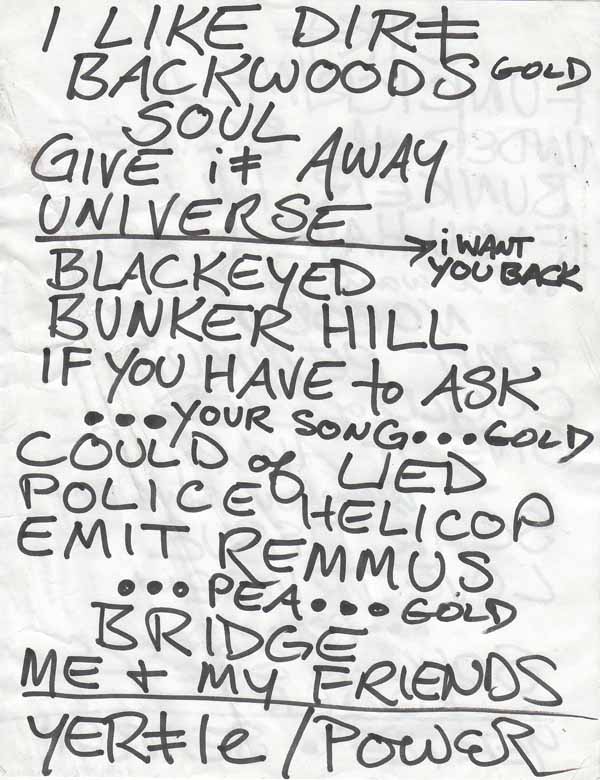 I LIKE DIRt
BACKWOODS GOLD
SOUL
GIVE it AWAY
UNIVERSE
i WANT
YOU BACK
BLACKEYED
BUNKER HILL
IF YOU HAVE to ASK
...YOUR SONG...GOLD
COULD of LIED
POLICE HELICOP
EMIT REMMUS
...PEA... GOLD
BRIDGE
ME + MY FRIENDS
YERtle / POWER